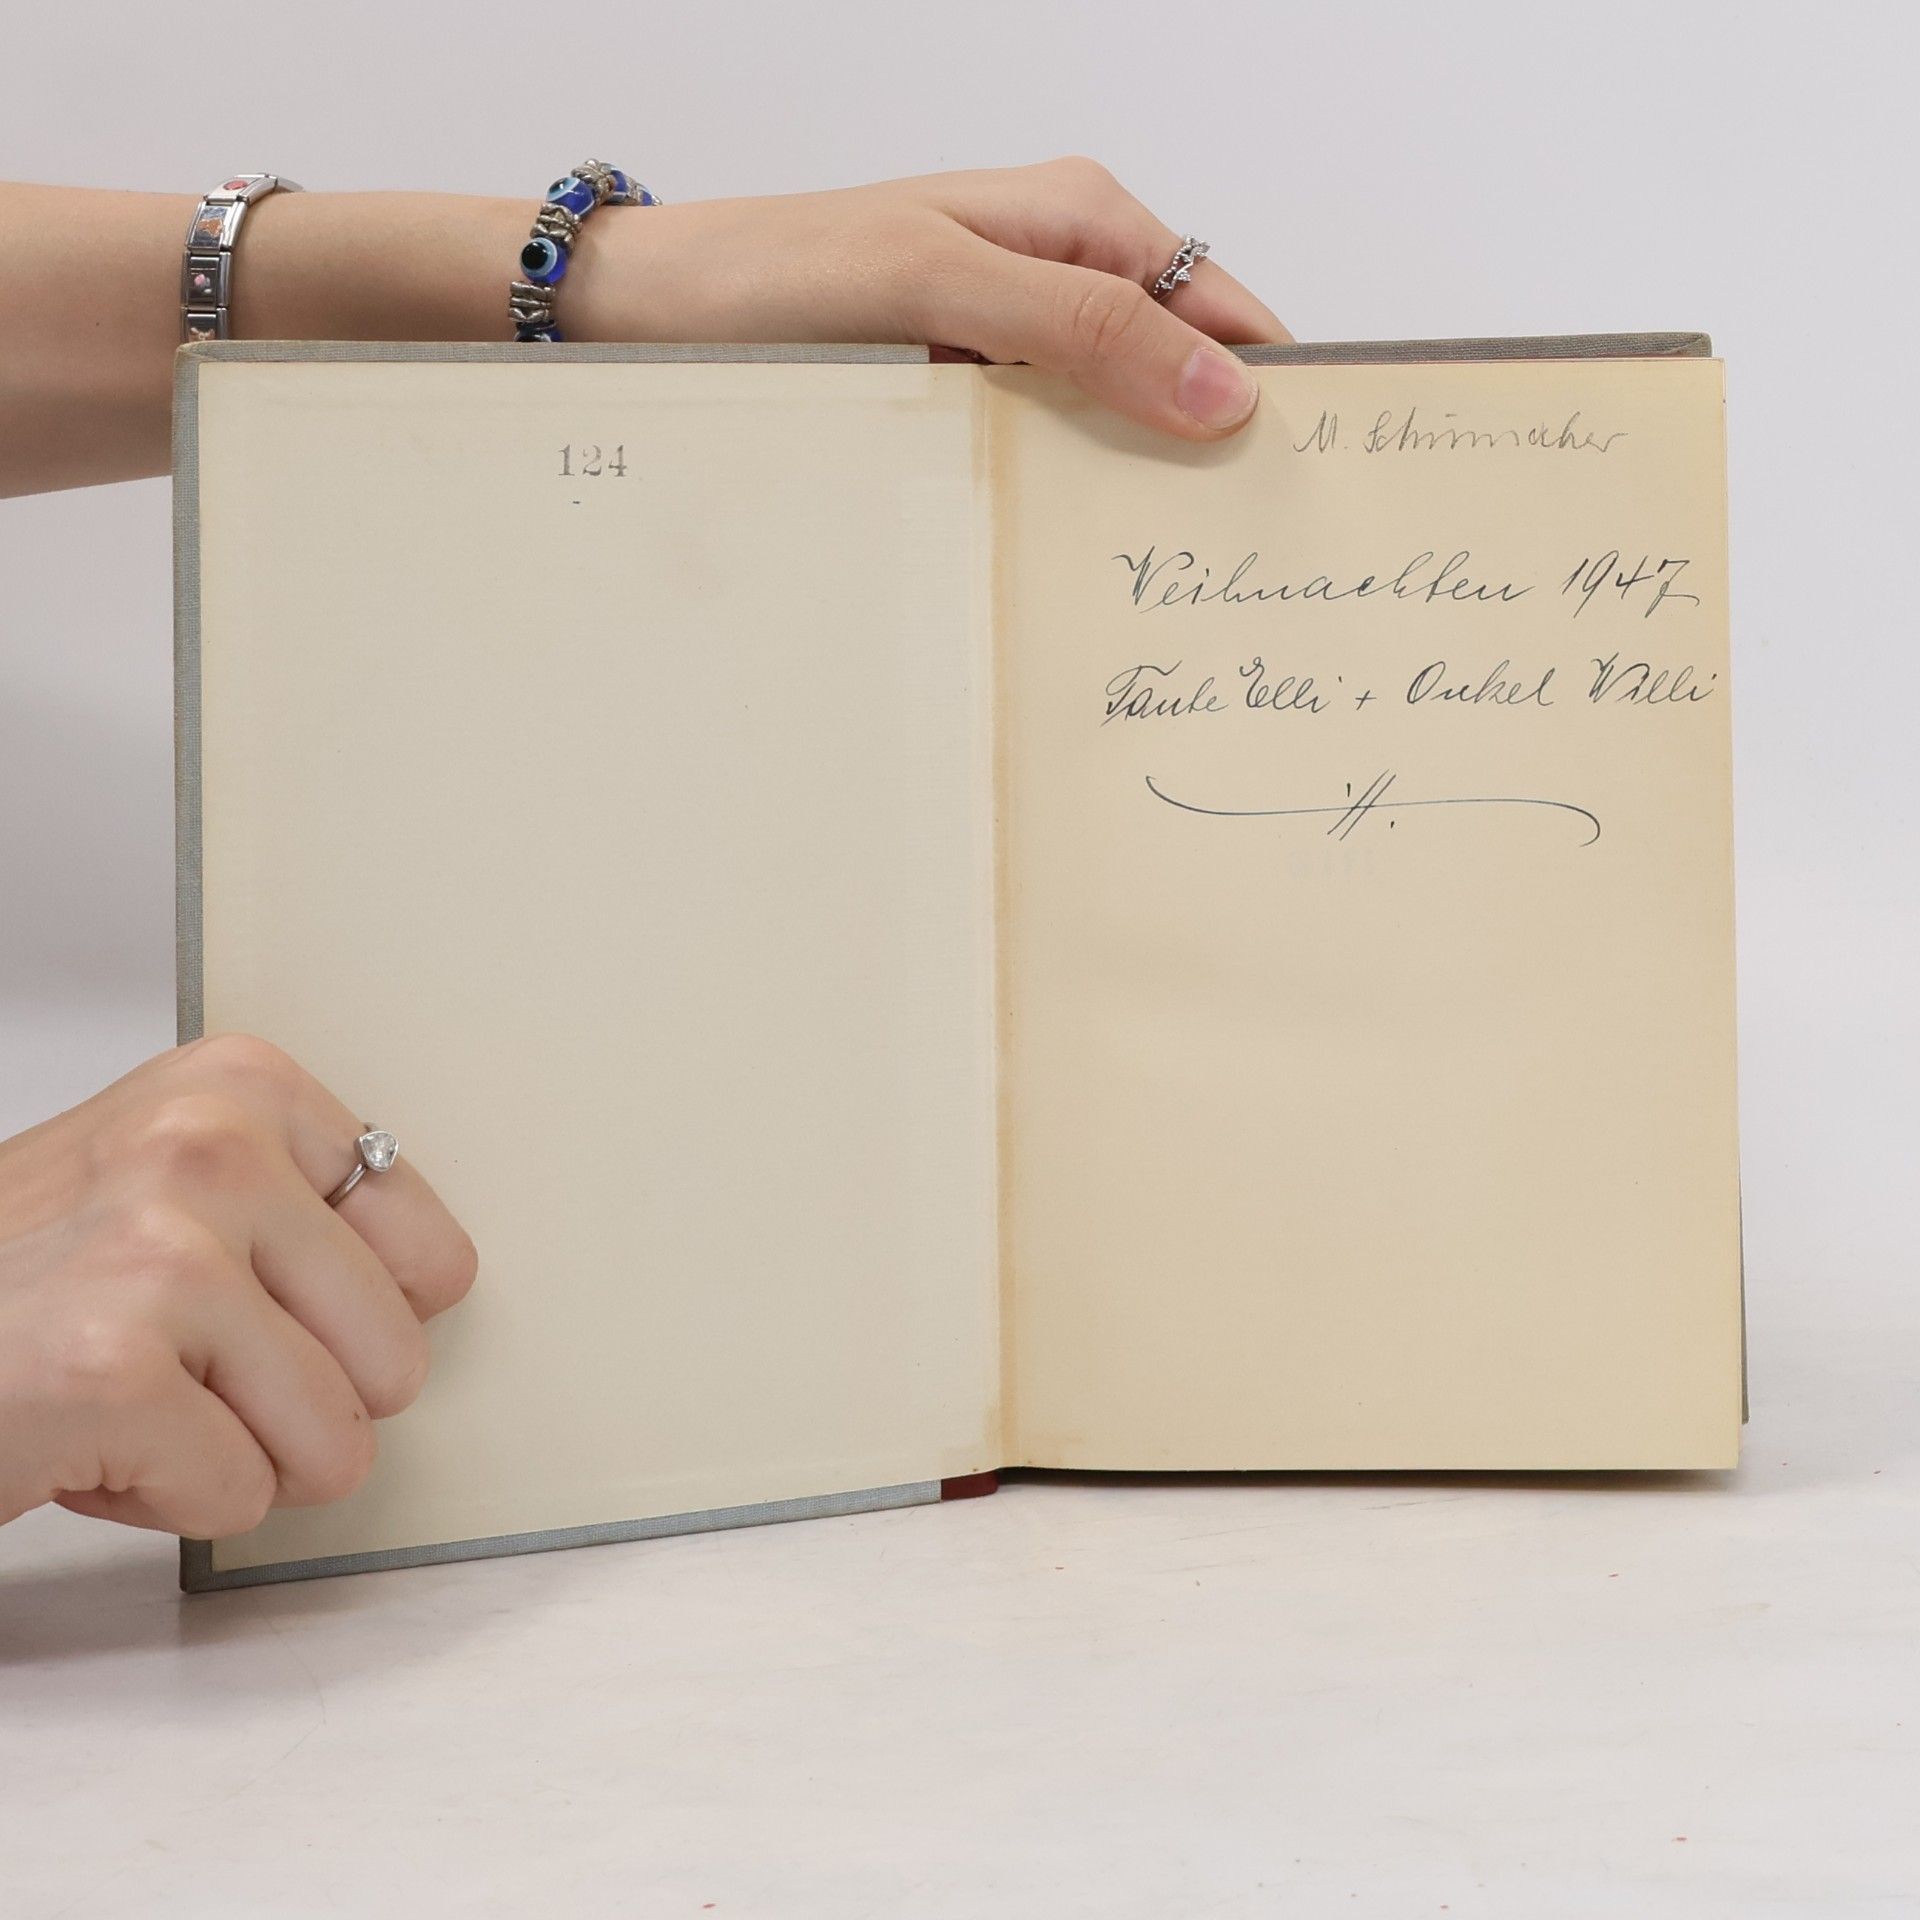 124
M. Schumacher
Weihnachten 1947
Tante Elli + Onkel Willi